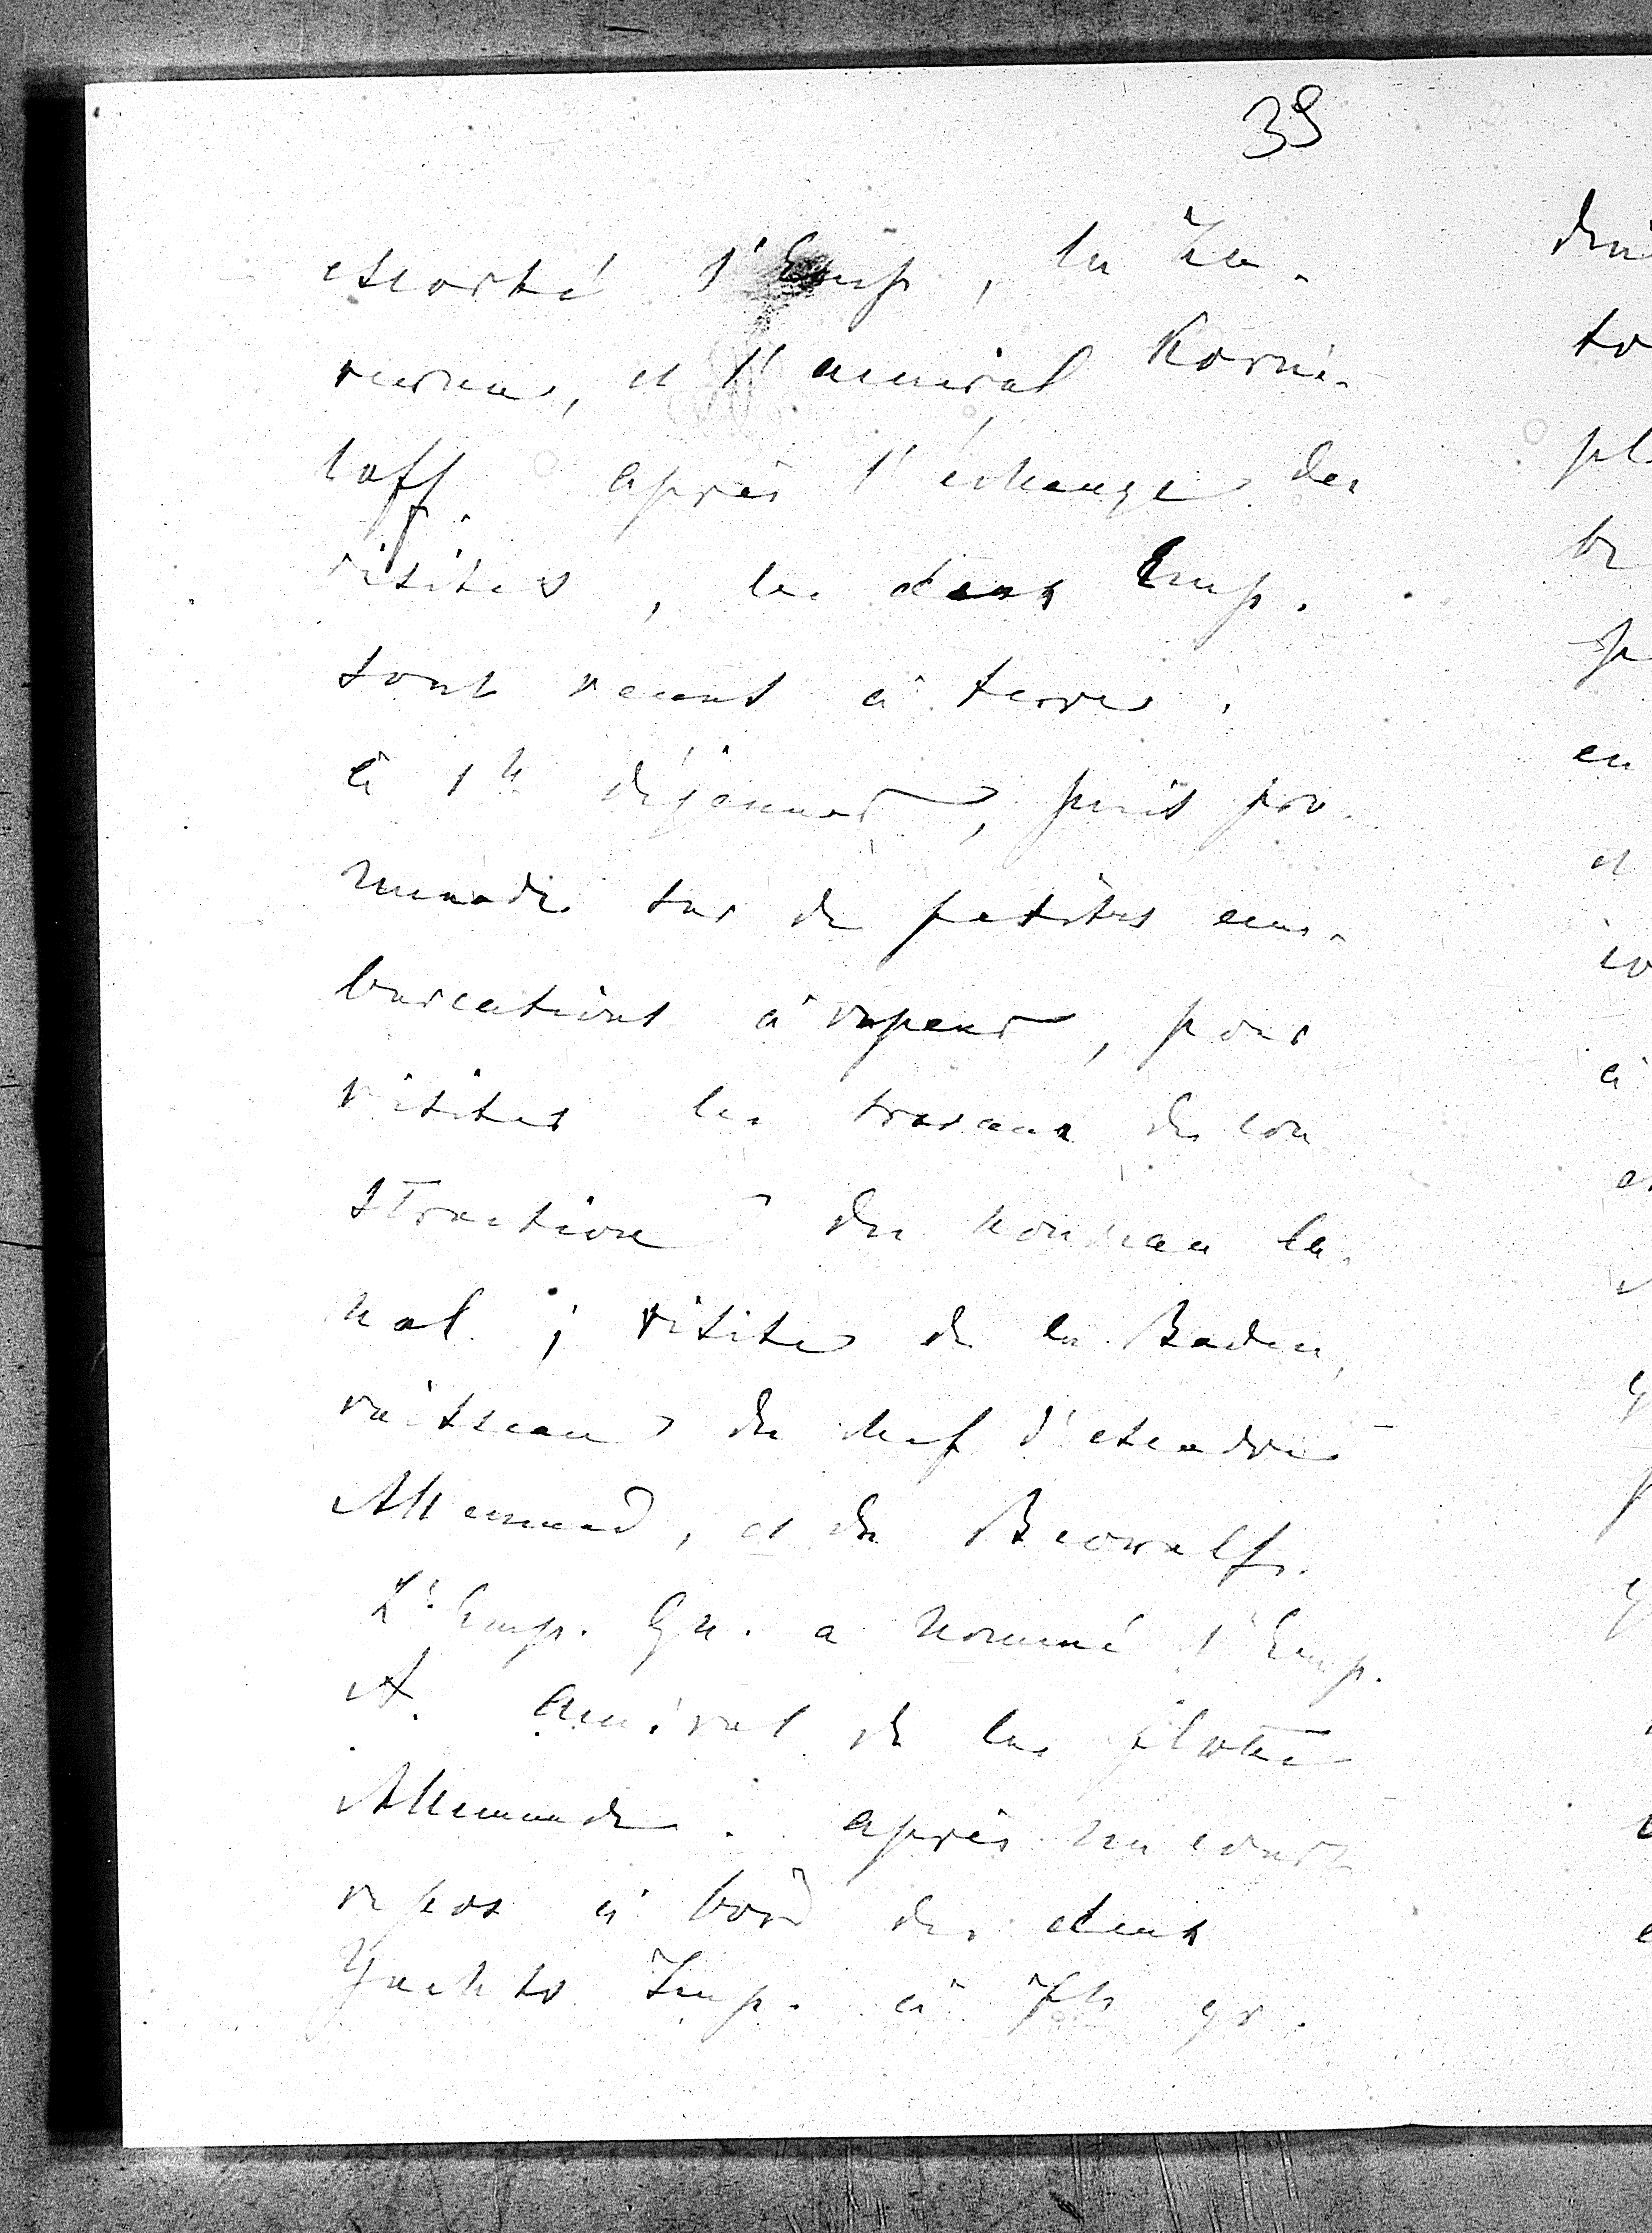 39
escorté l'Emp, la Za-
revna, et l'amiral Korni-
loff. après l'échange des
visites, les deux Emp.
sont venus à terre.
à 1h déjeuner, puis pro-
menade sur de petites em-
barcations à vapeur, pour
visiter les travaux de con
struction du nouveau ca-
nal; visite de la Baden,
vaisseau du chef d'escadre
Allemand, et du Beowulf.
L'Emp. Gu. a nommé l'Emp.
A. Amiral de la flotte
Allemande. après un court
repos à bord des deux
Yachts Imp. à 7h gr.